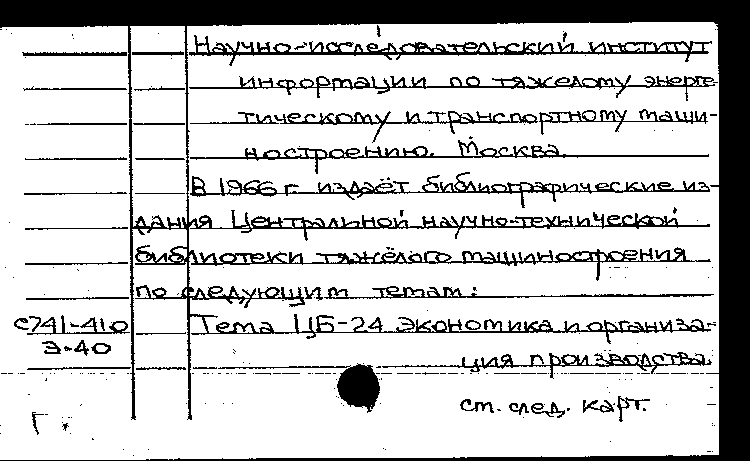 Научно-исследовательский институт
информации по тяжелому энерге
тическому и транспортному маши-
ностроению. Москва.
В 1966 г. издаёт библиографические из-
дания Центральной научно-технической
библиотеки тяжёлого машиностроения
по следующим темам:
с741-410
Э-40
Тема ЦБ-24 Экономика и организа-
ция производства.
см. след. карт.
Г.